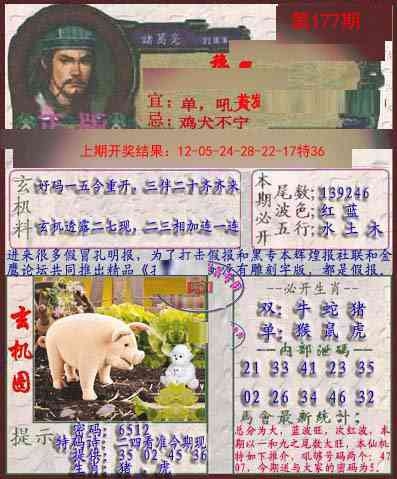 第177期
諸葛亮
宜:单,吼
黄发
忌:鸡犬不宁
上期开奖结果: 12-05-24-28-22-17特36
玄机料
好码一五合重开,三伴二十齐齐来
玄机透露二七现,二三相加连一连
本期必开
尾数:139246
波色:红 蓝
五行:水 土 木
进来很多假冒孔明报,为了打击假报和黑专本辉煌报社联和金
鹰论坛共同推出精品《
有雕刻字版,都是假报,
玄机图
--必开生肖--
双:牛 蛇 猪
单:猴 鼠 虎
--内部泄码--
21 33 41 23 35
02 26 34 46 32
馬會最新統計:
总分为大,蓝波旺,次红波,本
期以一和九之尾数大旺,本仙机
特如下推介,吼够号码两个: 47
07,今期送与大家的密码为5.
提示
密码: 6512
特码诗:二四看准今期现
提供: 35 02 45 36
生肖: 猪,虎